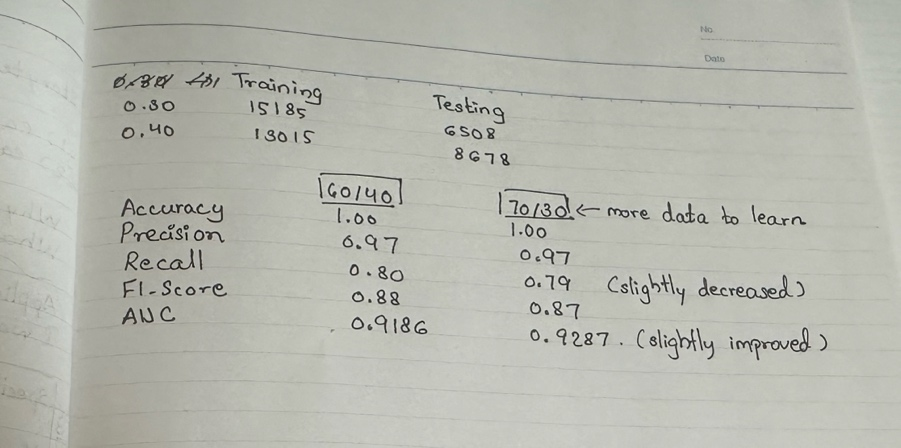 No.
Date
Training Testing
0.30 15185 6508
0.40 13015 8678
60/40 70/30 ← more data to learn
Accuracy 1.00 1.00
Precision 0.97 0.97
Recall 0.80 0.79 (slightly decreased)
F1-Score 0.88 0.87
AUC 0.9186 0.9287. (slightly improved)